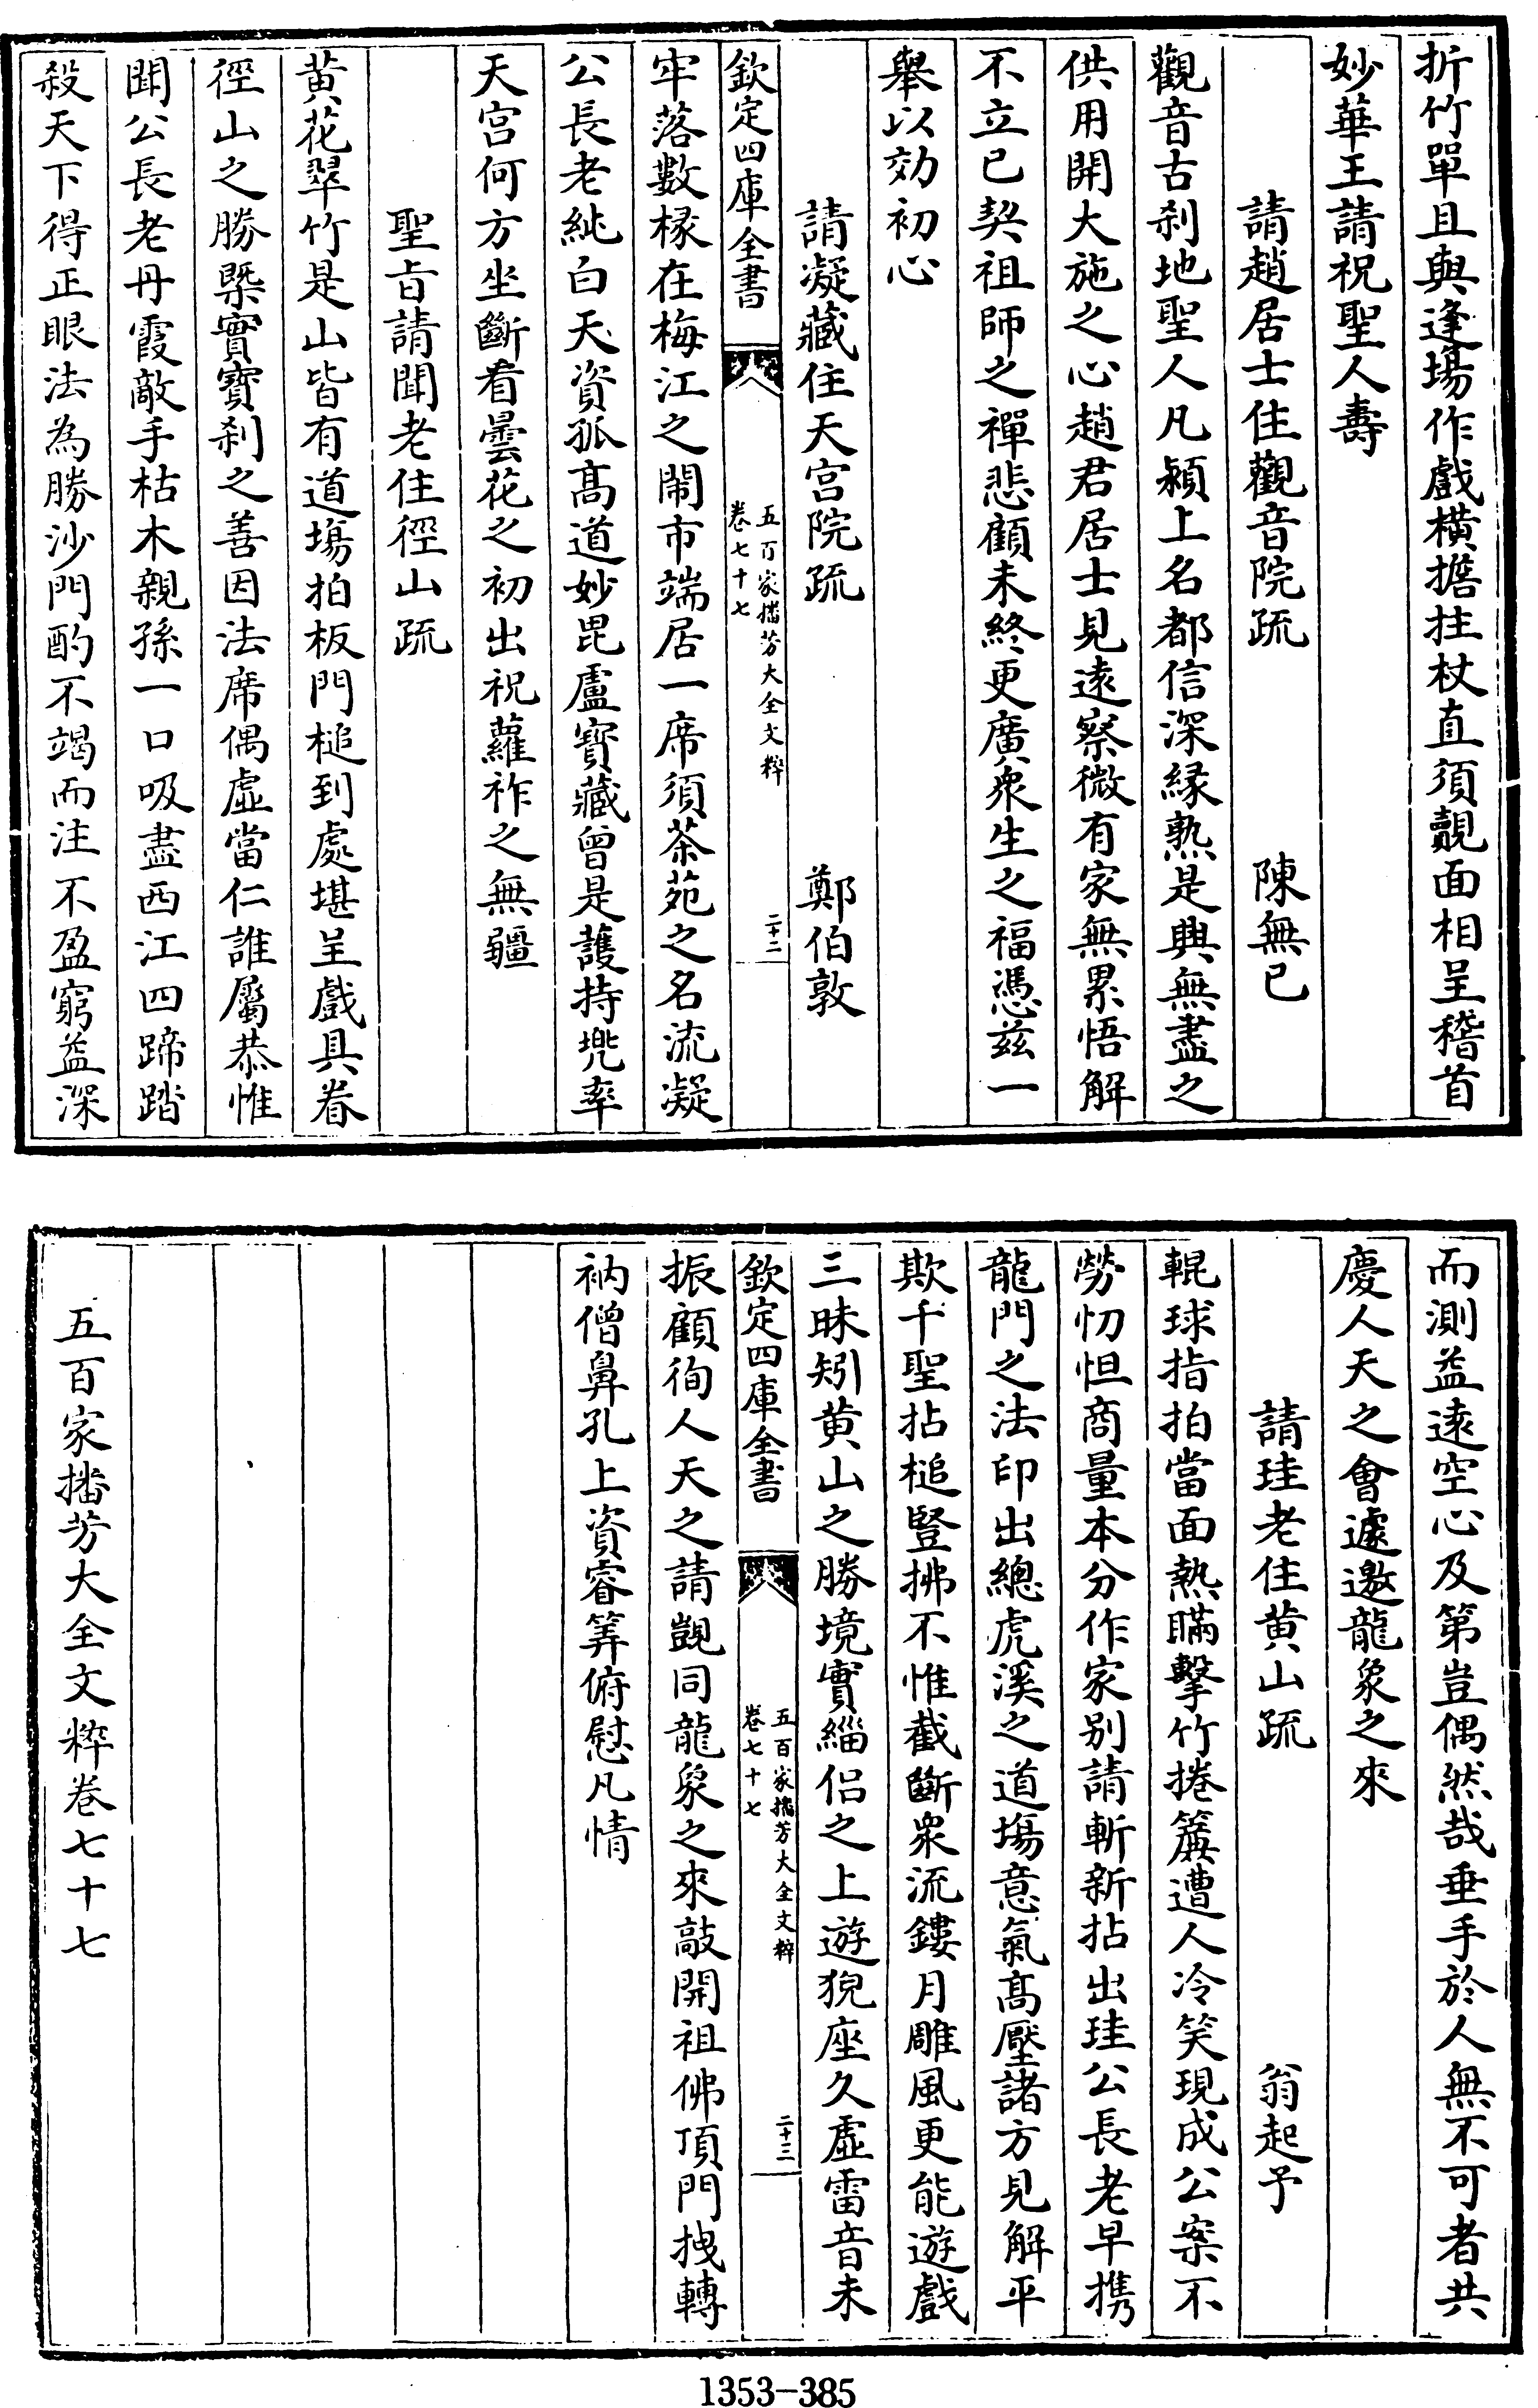 折竹單且與逢場作戲橫擔拄杖直須覿面相呈稽首
妙華王請祝聖人壽
請趙居士住觀音院疏 陳無已
觀音古刹地聖人凡潁上名都信深緣熟是興無盡之
供用開大施之心趙君居士見遠察微有家無累悟解
不立已契祖師之禪悲顧未終更廣衆生之福憑兹一
舉以効初心
請凝藏住天宫院疏 鄭伯敦
欽定四庫全書
五百家播芳大全文粹
卷七十七
二十二
牢落數椽在梅江之閙市端居一席須茶苑之名流凝
公長老純白天資孤高道妙毘盧寶藏曾是護持兠率
天宫何方坐斷看曇花之初出祝蘿祚之無疆
聖旨請聞老住徑山疏
黄花翠竹是山皆有道塲拍板門槌到處堪呈戲具眷
徑山之勝槩實寳刹之善因法席偶虛當仁誰屬恭惟
聞公長老丹霞敵手枯木親孫一口吸盡西江四蹄踏
殺天下得正眼法為勝沙門酌不竭而注不盈窮益深
而測益逺空心及第豈偶然哉垂手於人無不可者共
慶人天之會遽邀龍象之來
請珪老住黄山疏 翁起予
輥球指拍當面熱瞞擊竹捲簾遭人冷笑現成公案不
勞忉怛商量本分作家别請斬新拈出珪公長老早携
龍門之法印出總虎溪之道塲意氣高壓諸方見解平
欺千聖拈槌豎拂不惟截斷衆流鏤月雕風更能遊戲
三昧矧黄山之勝境實緇侣之上遊猊座久虛雷音未
欽定四庫全書
五百家播芳大全文粹
卷七十七
二十三
振顧徇人天之請覬同龍象之來敲開祖佛頂門拽轉
衲僧鼻孔上資睿筭俯慰凡情
五百家播芳大全文粹卷七十七
1353-385